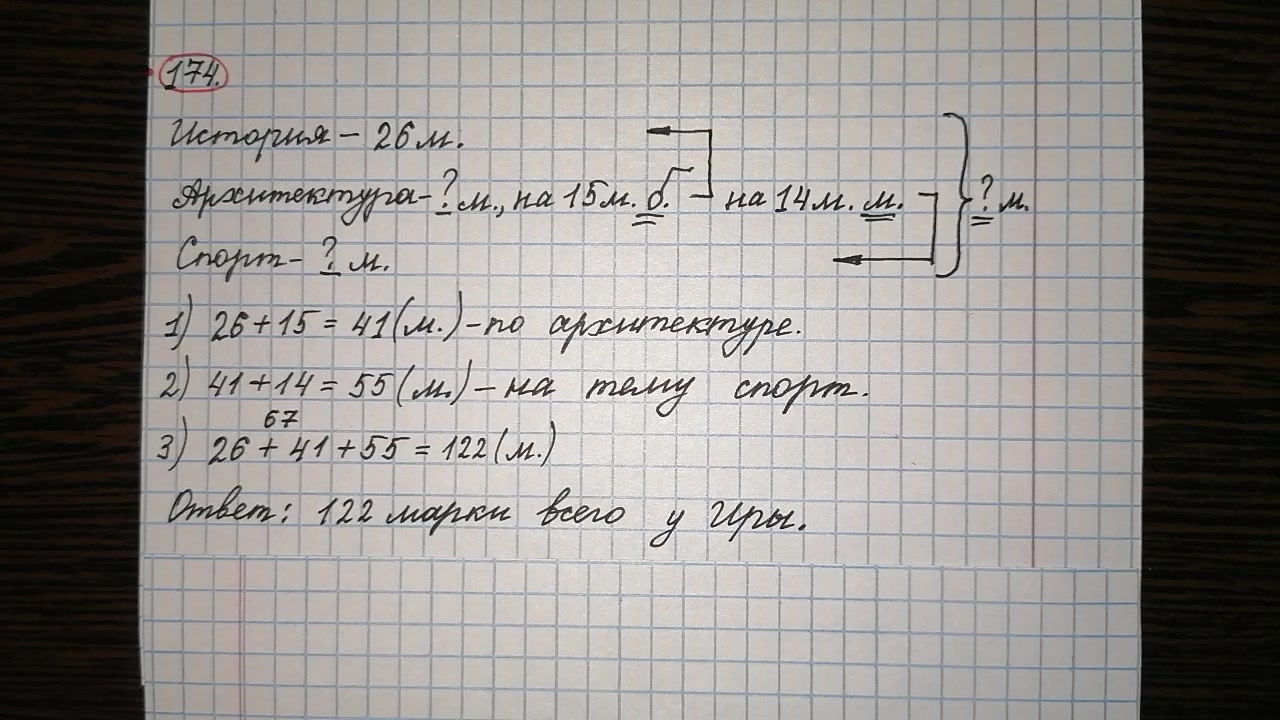 174.
История – 26 м.
Архитектура – ? м., на 15 м. б. на 14 м. м. ? м.
Спорт – ? м.
1) 26 + 15 = 41 (м.) – по архитектуре.
2) 41 + 14 = 55 (м.) – на тему спорт.
67
3) 26 + 41 + 55 = 122 (м.)
Ответ: 122 марки всего у Иры.